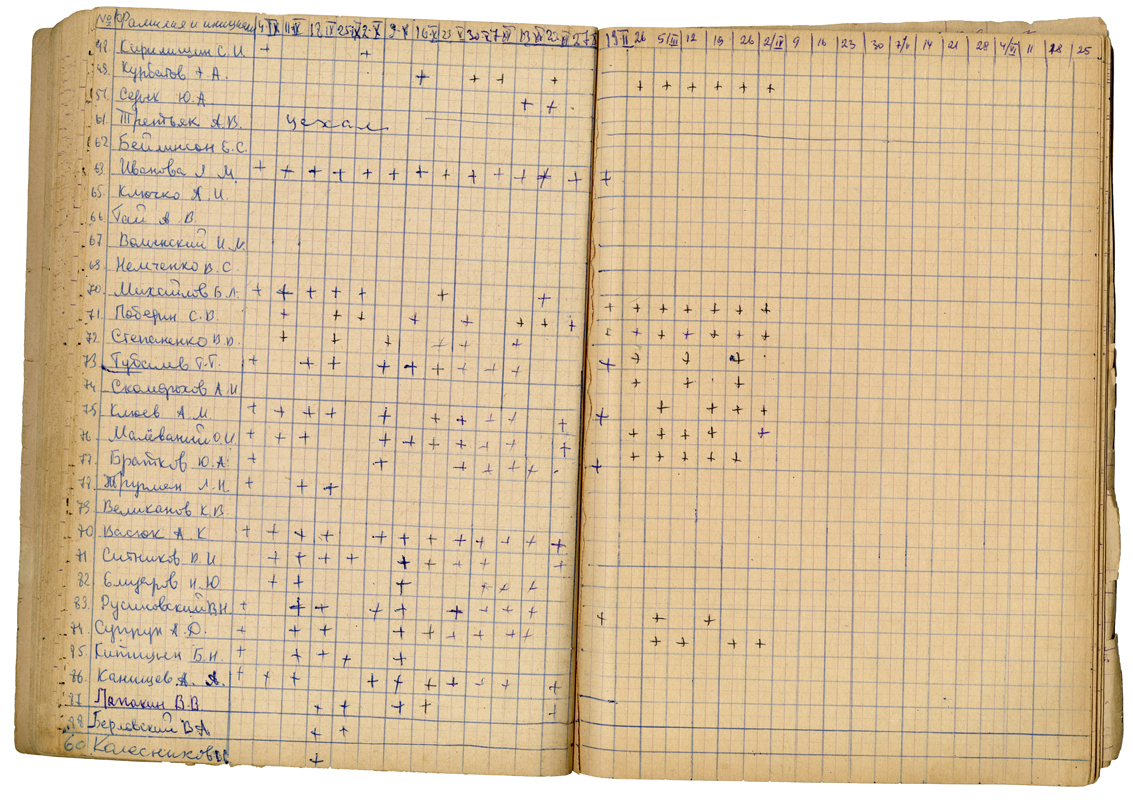 № Фамилия и инициалы 4 IX 11 IX 18 IX 25 IX 2 X 9 X 16 X 23 X 30 X 7 13 XII 27 19 II 26 5/III 12 19 26 2/IV 9 16 23 30 7/V 14 21 28 4/VI 11 18 25
48. Кирилишин С. И. + +
49. Курбатов А. + + + + + + + + + +
Серых Ю. А + +
61. Третьяк А. В. уехал
62 Бейлинсон Е. С.
63 Иванова Л М. + + + + + + + + + + + + + +
65. Ключко А. И.
66 Гай А В
67 Волынский И. М.
68. Немченко В. С.
70. Михайлов Б. Л + + + + + + + + + + + + + +
71. Поберин С. В. + + + + + + + + + + + + + + +
72. Степаненко В. В. + + + + + + + + +
73 Губалев Г. Г. + + + + + + + + + + + + +
74 Скоморохов А. И
75 Клюев А. М. + + + + + + + + + + + + + + +
76. Малёваный О. И. + + + + + + + + + + + +
77. Братков Ю. А. + + + + + + + + + + + +
78. Трутмен Л. Н. + + +
79. Великанов К. В.
70 Васюк А К + + + + + + + + + + + +
71 Ситников В. И + + + + + + + + +
82 Елизаров И. Ю + + + + + +
83. Русиновский В. Н. + + + + + + + + + + + +
84. Супрун А. Д. + + + + + + + + + + + + +
85. Китицын Б. Н. + + + + +
86. Канищев А. А. + + + + + + + + + +
87. Лапокин В. В + + + + +
88. Берловский В А + +
60 Колесников +